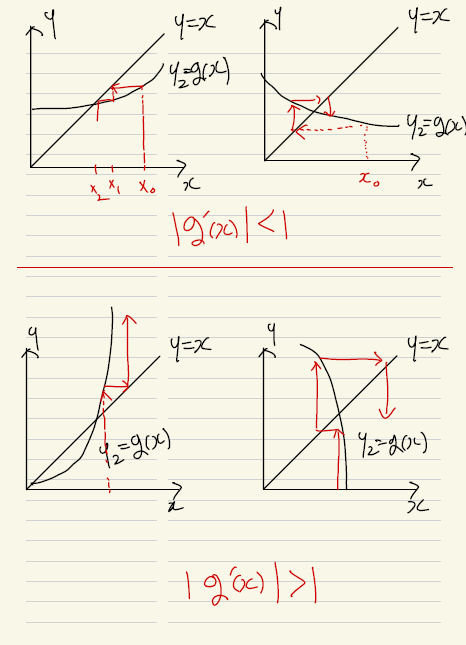 y
y=x
y₂=g(x)
x₂ x₁ x₀
x
y
y=x
y₂=g(x)
x₀
x
|g'(x)|<1
y
y=x
y₂=g(x)
x
y
y=x
y₂=g(x)
x
|g'(x)|>1